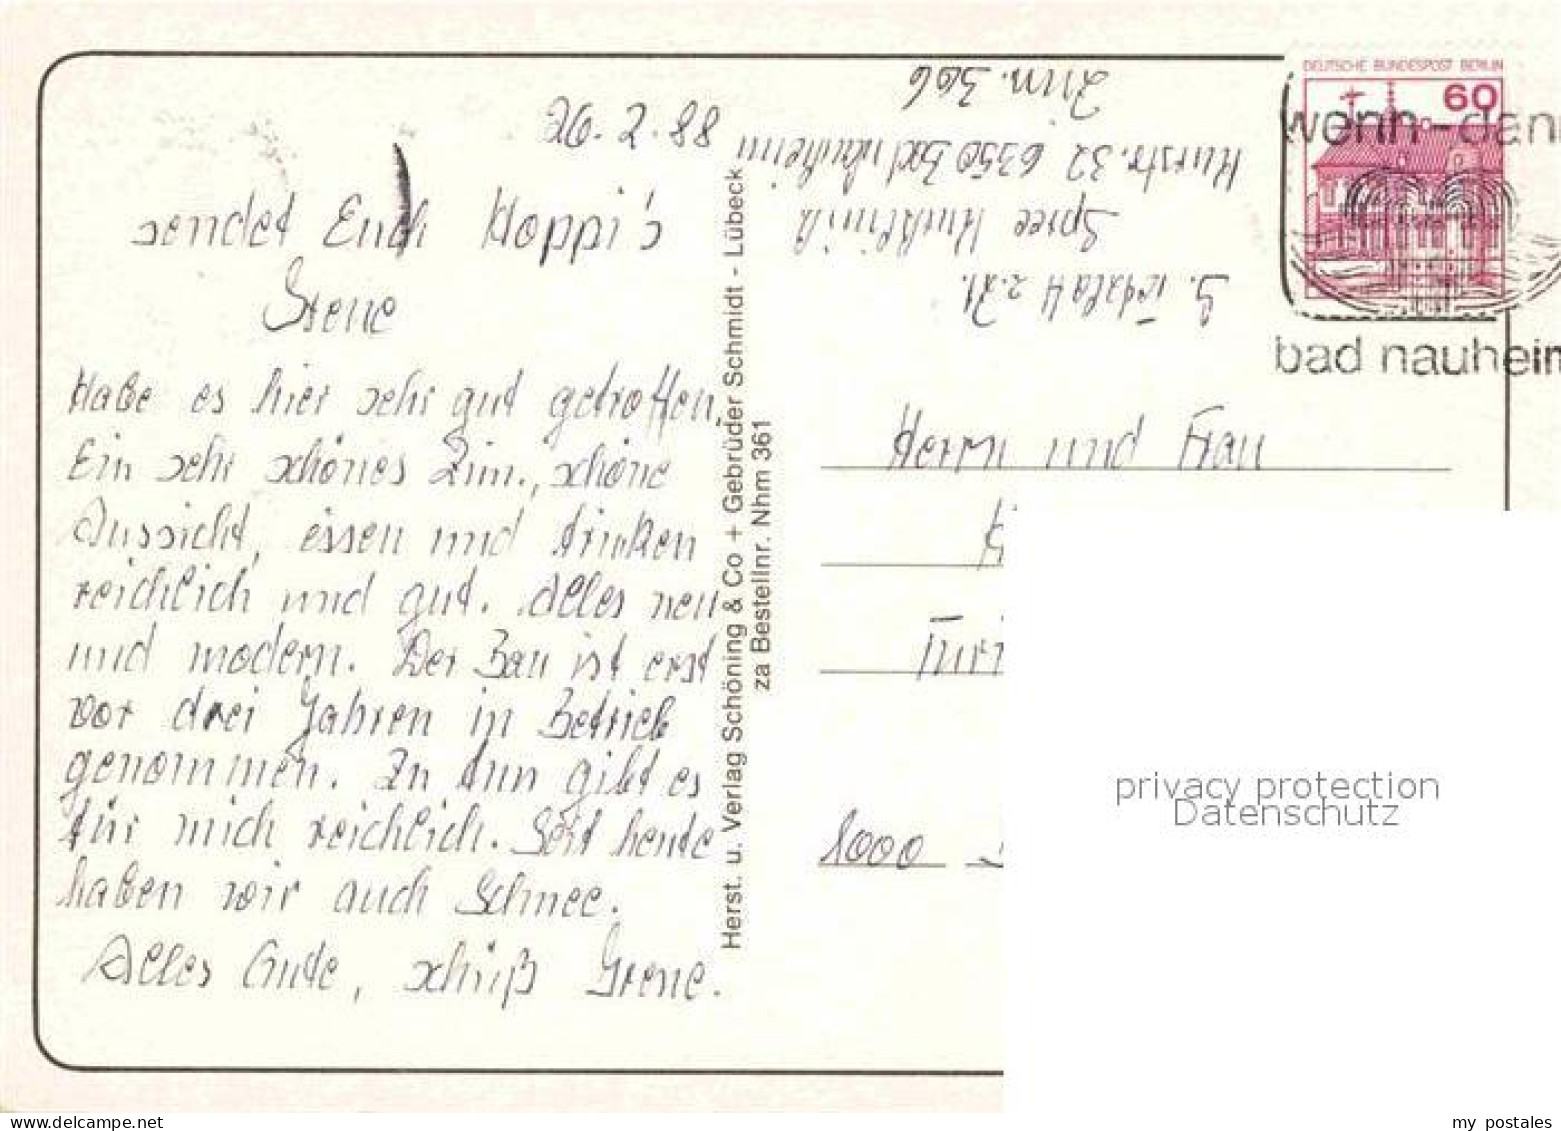 26.2.88
sendet Euch Hoppi's
Irene
Habe es hier sehr gut getroffen.
Ein sehr schönes Zim., schöne
Aussicht, essen und trinken
reichlich und gut. Alles neu
und modern. Der Bau ist erst
vor drei Jahren in Betrieb
genommen. Zu tun gibt es
für mich reichlich. Seit heute
haben wir auch Schnee.
Alles Gute, schüß Irene.
Herst. u. Verlag Schöning & Co + Gebrüder Schmidt - Lübeck
za Bestellnr. Nhm 361
z.Zt.
Spree Kurklinik
Kurstr. 32 6350 Bad Nauheim
Zim. 306
DEUTSCHE BUNDESPOST BERLIN
60
wenn - dann
bad nauheim
Herrn und Frau
1000
privacy protection
Datenschutz
my postales